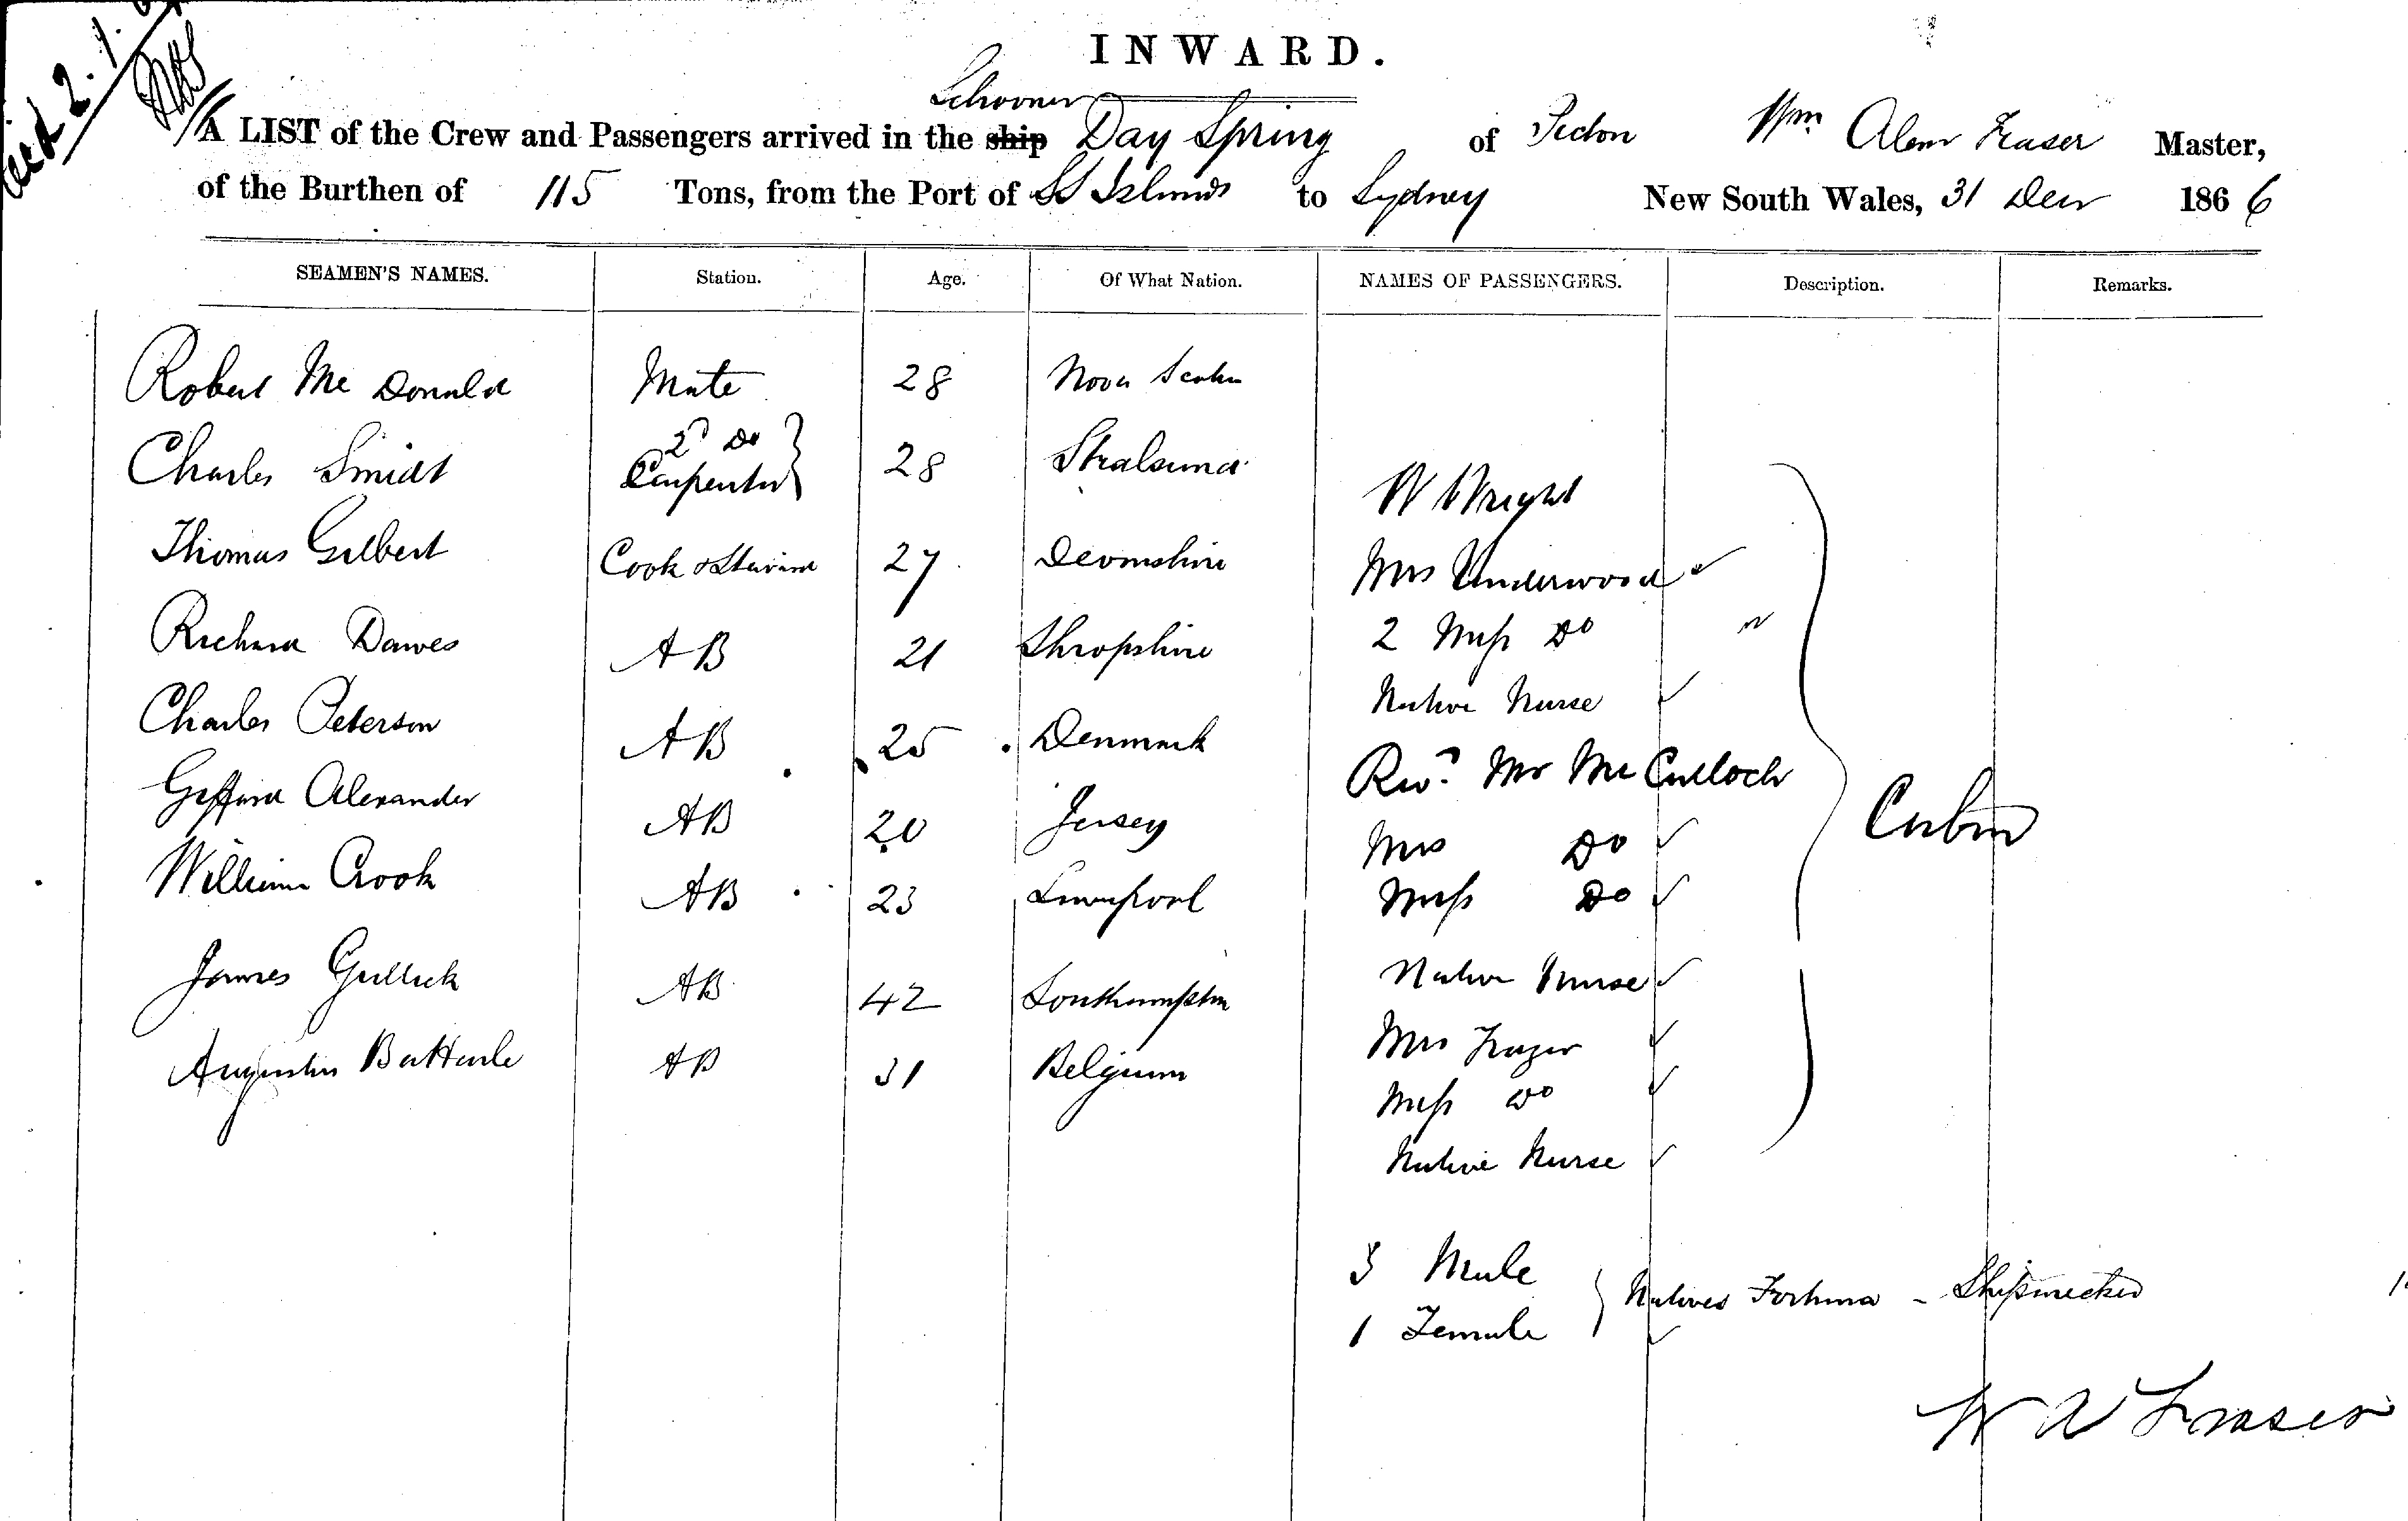 INWARD.
Schooner
A LIST of the Crew and Passengers arrived in the ship Day Spring of Picton Wm Alexr Fraser Master,
of the Burthen of 115 Tons, from the Port of SS Islands to Sydney New South Wales, 31 Decr 1866
SEAMEN'S NAMES. Station. Age. Of What Nation. NAMES OF PASSENGERS. Description. Remarks.
Robert McDonald Mate 28 Nova Scotia
Charles Smidt 2d Do Carpenter 28 Stralsund
W Wright
Thomas Gilbert Cook & Steward 27 Devonshire
Mrs Underwood
Richard Dawes AB 21 Shropshire
2 Miss Do
Native Nurse
Charles Peterson AB 25 Denmark
Revd Mr McCulloch
Alexander AB 20 Jersey
Mrs Do
Cabin
William Crook AB 23 Liverpool
Miss Do
James Gullick AB 42 Southampton
Native Nurse
Mrs Frazer
AB 31 Belgium
Miss Do
Native Nurse
3 Male
1 Female
Natives Fortuna - Shipwrecked
W A Fraser